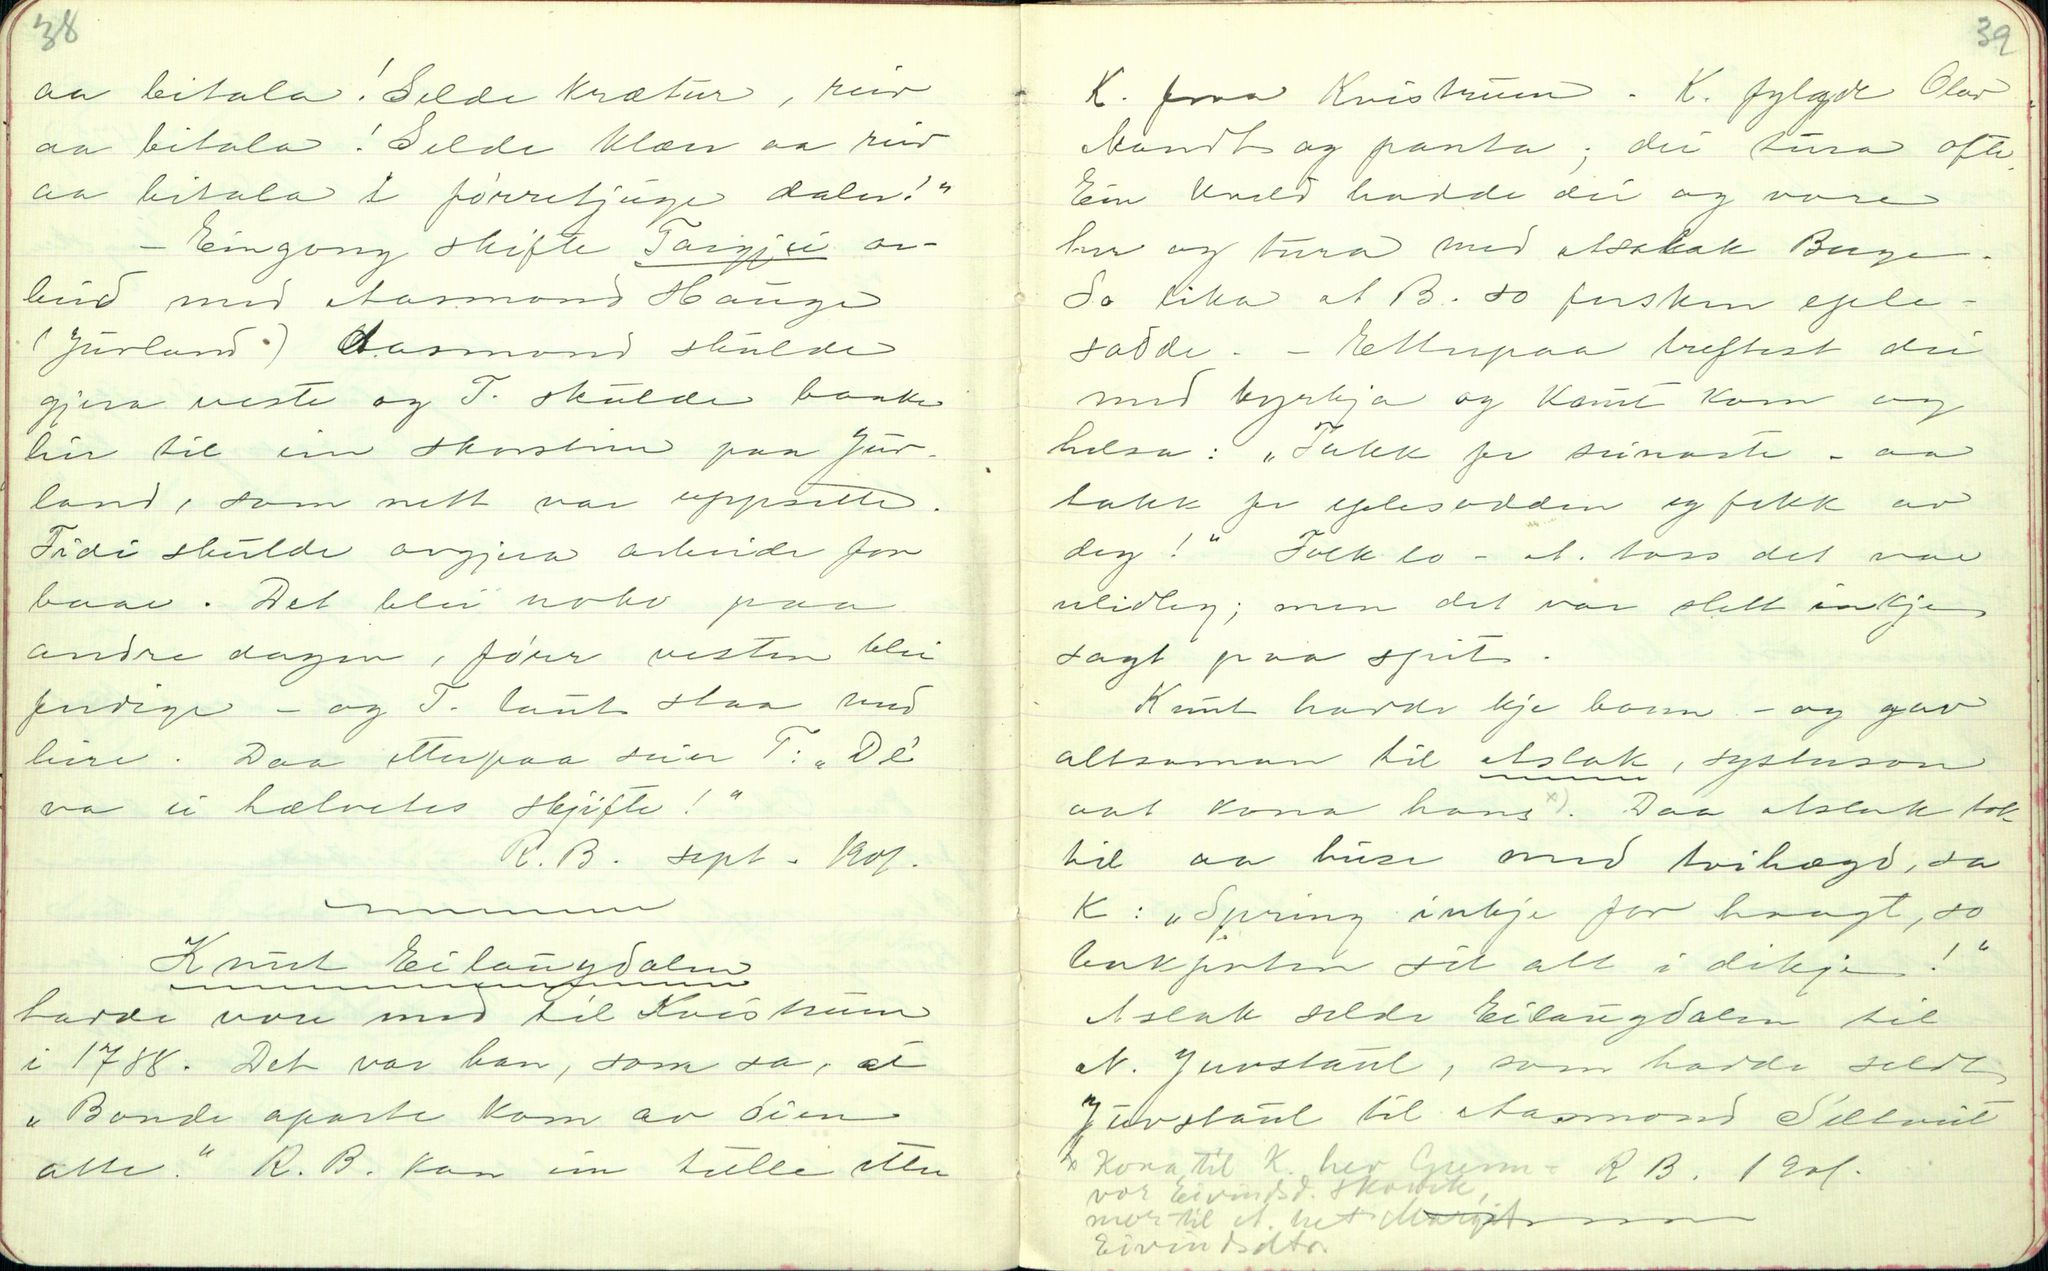 38
aa bitala! Selde krætur, reiv
aa bitala! Selde klær aa reiv
aa bitala i fórretjuge daler!"
— Eingong skifte Targjei ar-
beid med Aasmond Hauge
(Jurland.) Aasmond skulde
gjera veste og T. skulde banke
leir til ein skorstein paa Jur-
land, som nett var uppsette.
Tidi skulde avgjera arbeide for
baae. Det blei noko paa
andre dagen, fórr vesten blei
ferdige — og T. laut staa med
leire. Daa etterpaa seier T: „Dé
va ei hælvetes skjifte!"
R. B. sept. 1901.
Knut Eilaugdalen
hadde vore med til Kvistrum
i 1788. Det var han, som sa, at
„Bonde aparte kom av dien
atte." R. B. kan ein tulle etter
39
K. fraa Kvistrum. K. fylgde Olav
Nandt og panta; dei tura ofte.
Ein kveld hadde dei og vore
her og tura med Aslak Buge.
So lika at B. so fersken eple-
sodde. — Etterpaa treftest dei
med kyrkja og Knut kom og
helsa: „Takk fer seinaste — aa
takk fer eplesodden eg fekk av
deg!" Folk lo — A. toss det var
ulidleg; men det var slett inkje
sagt paa spit.
Knut hadde kje born — og gav
altsaman til Aslak, systerson
aat kona hans x). Daa Aslak tok
til aa huse med tvihøgd, sa
K: „Spring inkje for høgt, so
bakparten sit att i dikje!"
Aslak selde Eilaugdalen til
N. Juvstaul, som hadde seldt
Juvstaul til Aasmond Seltveit
R B. 1901.
x Kona til K. her Gunn-
vor Eivindsd. Skorvik,
mor til A. het Margit
Eivindsdtr.